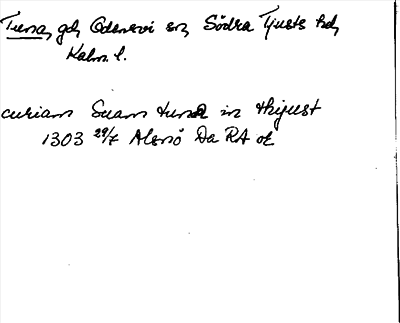 Tuna, gd, Odensvi sn, Södra Tjusts hd,
Kalm. l.
curiam Suam tuna in thijust
1303 29/7 Alsnö Da RA or